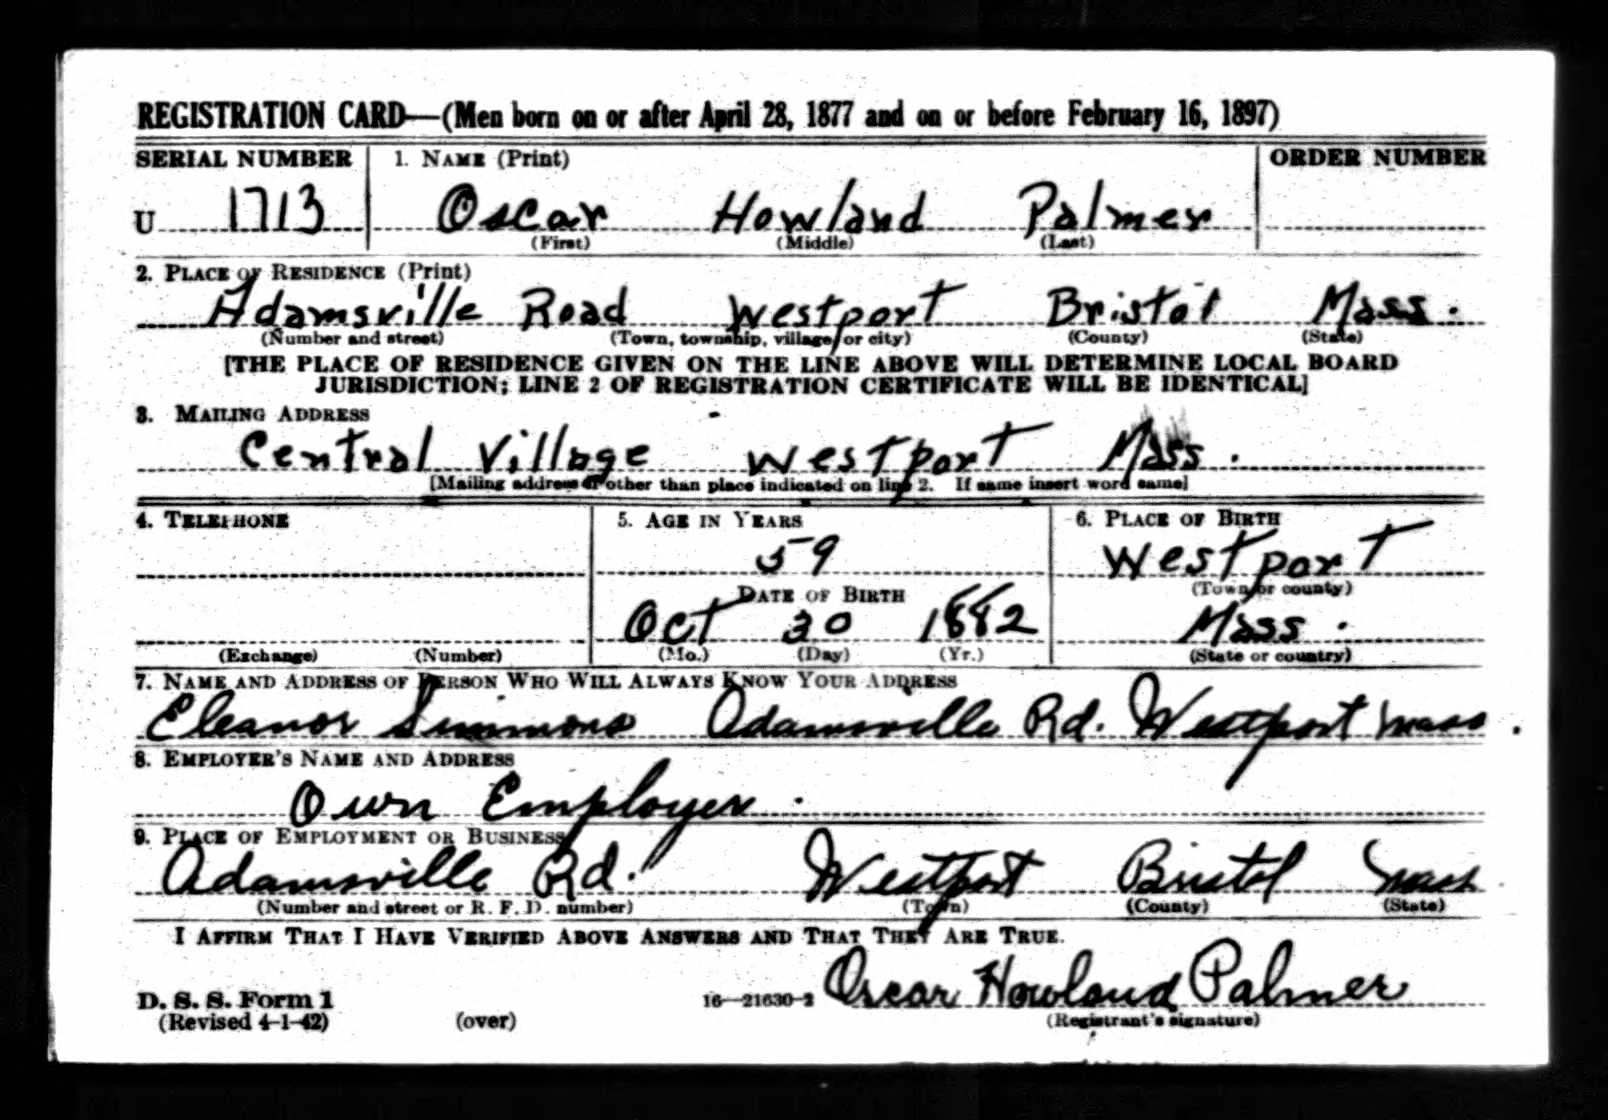 REGISTRATION CARD—(Men born on or after April 28, 1877 and on or before February 16, 1897)
SERIAL NUMBER 1. NAME (Print) ORDER NUMBER
U 1713 Oscar Howland Palmer
(First) (Middle) (Last)
2. PLACE OF RESIDENCE (Print)
Adamsville Road Westport Bristol Mass.
(Number and street) (Town, township, village, or city) (County) (State)
[THE PLACE OF RESIDENCE GIVEN ON THE LINE ABOVE WILL DETERMINE LOCAL BOARD
JURISDICTION; LINE 2 OF REGISTRATION CERTIFICATE WILL BE IDENTICAL]
3. MAILING ADDRESS
Central Village Westport Mass.
[Mailing address if other than place indicated on line 2. If same insert word same]
4. TELEPHONE 5. AGE IN YEARS 6. PLACE OF BIRTH
59 Westport
DATE OF BIRTH (Town or county)
Oct 30 1882 Mass.
(Exchange) (Number) (Mo.) (Day) (Yr.) (State or country)
7. NAME AND ADDRESS OF PERSON WHO WILL ALWAYS KNOW YOUR ADDRESS
Eleanor Simmons Adamsville Rd. Westport Mass.
8. EMPLOYER'S NAME AND ADDRESS
Own Employer.
9. PLACE OF EMPLOYMENT OR BUSINESS
Adamsville Rd. Westport Bristol Mass
(Number and street or R. F. D. number) (Town) (County) (State)
I AFFIRM THAT I HAVE VERIFIED ABOVE ANSWERS AND THAT THEY ARE TRUE.
D. S. S. Form 1 16—21630-2 Oscar Howland Palmer
(Revised 4-1-42) (over) (Registrant's signature)